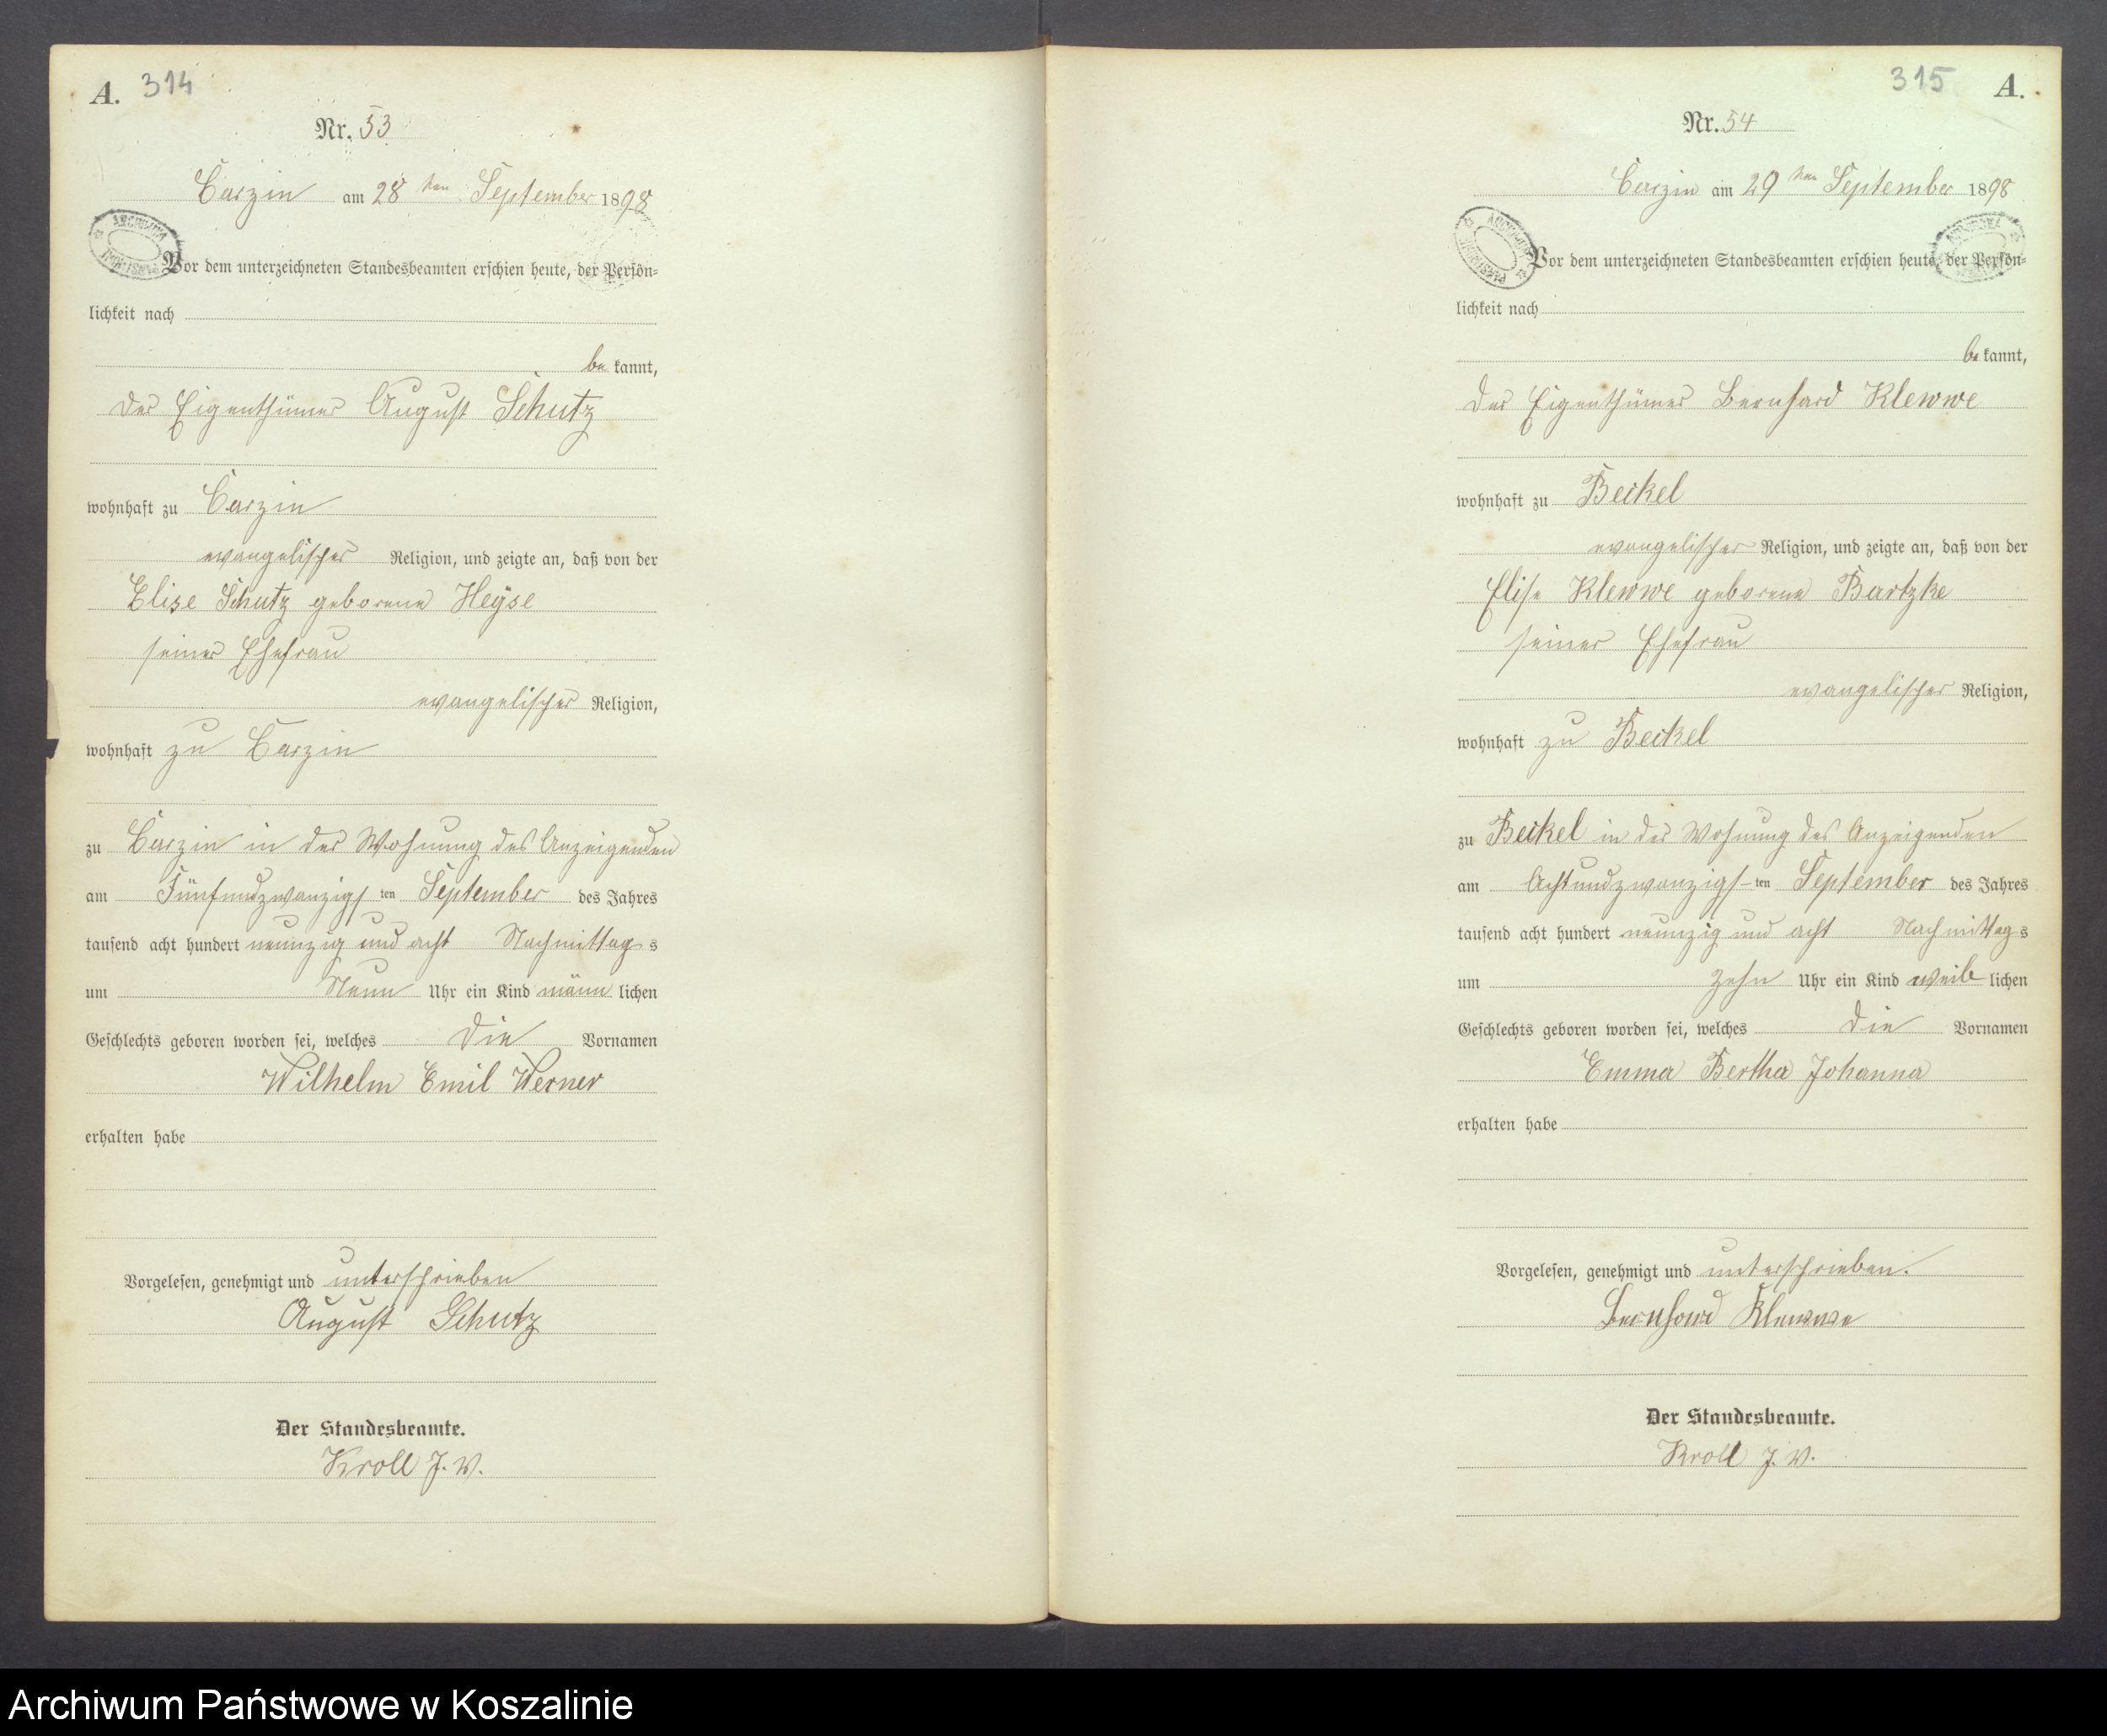 A. 314
Nr. 53
Carzin am 28ten September 1898
Vor dem unterzeichneten Standesbeamten erschien heute, der Persön=
lichkeit nach
be kannt,
der Eigenthümer August Schutz
wohnhaft zu Carzin
evangelischer Religion, und zeigte an, daß von der
Elise Schutz geborene Heÿse
seiner Ehefrau
evangelischer Religion,
wohnhaft zu Carzin
zu Carzin in der Wohnung des Anzeigenden
am Fünfundzwanzigsten September des Jahres
tausend acht hundert neunzig und acht Nachmittags
um Neun Uhr ein Kind männlichen
Geschlechts geboren worden sei, welches die Vornamen
Wilhelm Emil Werner
erhalten habe
Vorgelesen, genehmigt und unterschrieben
August Schutz
Der Standesbeamte.
Kroll J. V.
315 A.
Nr. 54
Carzin am 29ten September 1898
Vor dem unterzeichneten Standesbeamten erschien heute, der Persön=
lichkeit nach
be kannt,
der Eigenthümer Bernhard Klewwe
wohnhaft zu Beckel
evangelischer Religion, und zeigte an, daß von der
Elise Klewwe geborene Bartzke
seiner Ehefrau
evangelischer Religion,
wohnhaft zu Beckel
zu Beckel in der Wohnung des Anzeigenden
am Achtundzwanzigsten September des Jahres
tausend acht hundert neunzig und acht Nachmittags
um Zehn Uhr ein Kind weiblichen
Geschlechts geboren worden sei, welches die Vornamen
Emma Bertha Johanna
erhalten habe
Vorgelesen, genehmigt und unterschrieben.
Bernhard Klewwe
Der Standesbeamte.
Kroll J. V.
Archiwum Państwowe w Koszalinie